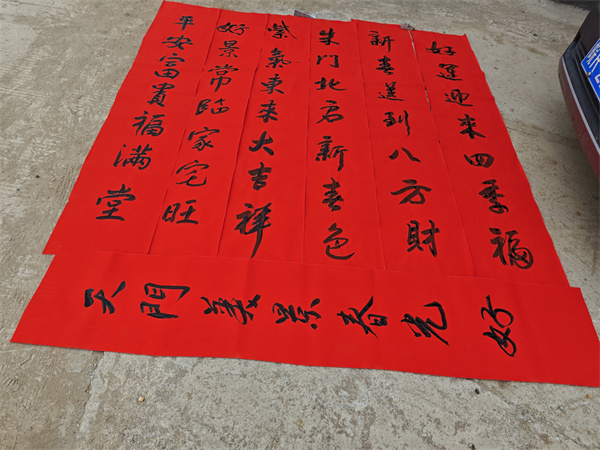 好運迎来四季福
新春送到八方財
朱门北启新春色
紫氣東来大吉祥
好景常临家宅旺
平安富貴福满堂
天門美景春光好